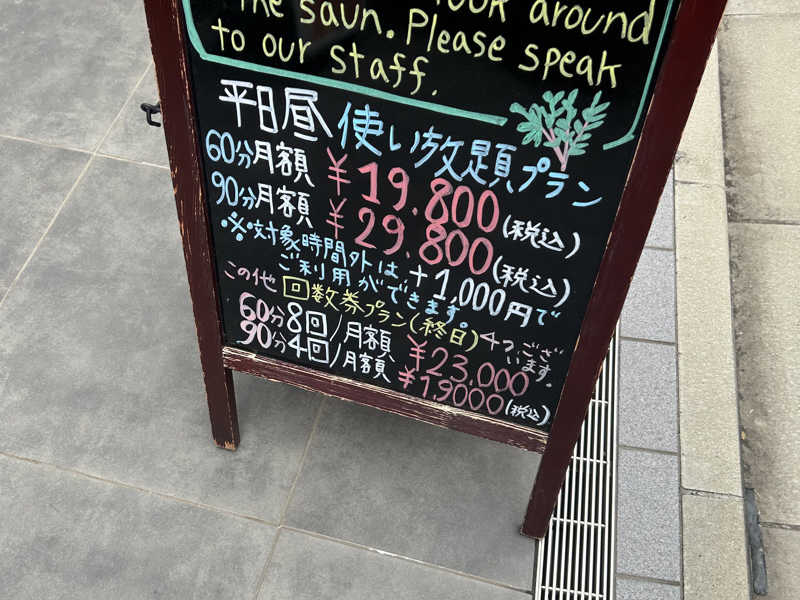 the saun. look around
to our staff. Please speak
平日昼 使い放題プラン
60分月額 ¥19.800(税込)
90分月額 ¥29.800(税込)
※対象時間外は+1,000円で
ご利用ができます。
この他 回数券プラン(終日)も ございます。
60分8回/月額 ¥23,000
90分4回/月額 ¥19000(税込)